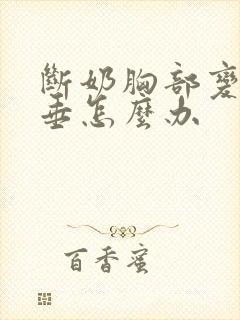 斷奶胸部
垂怎麼办
百香蜜